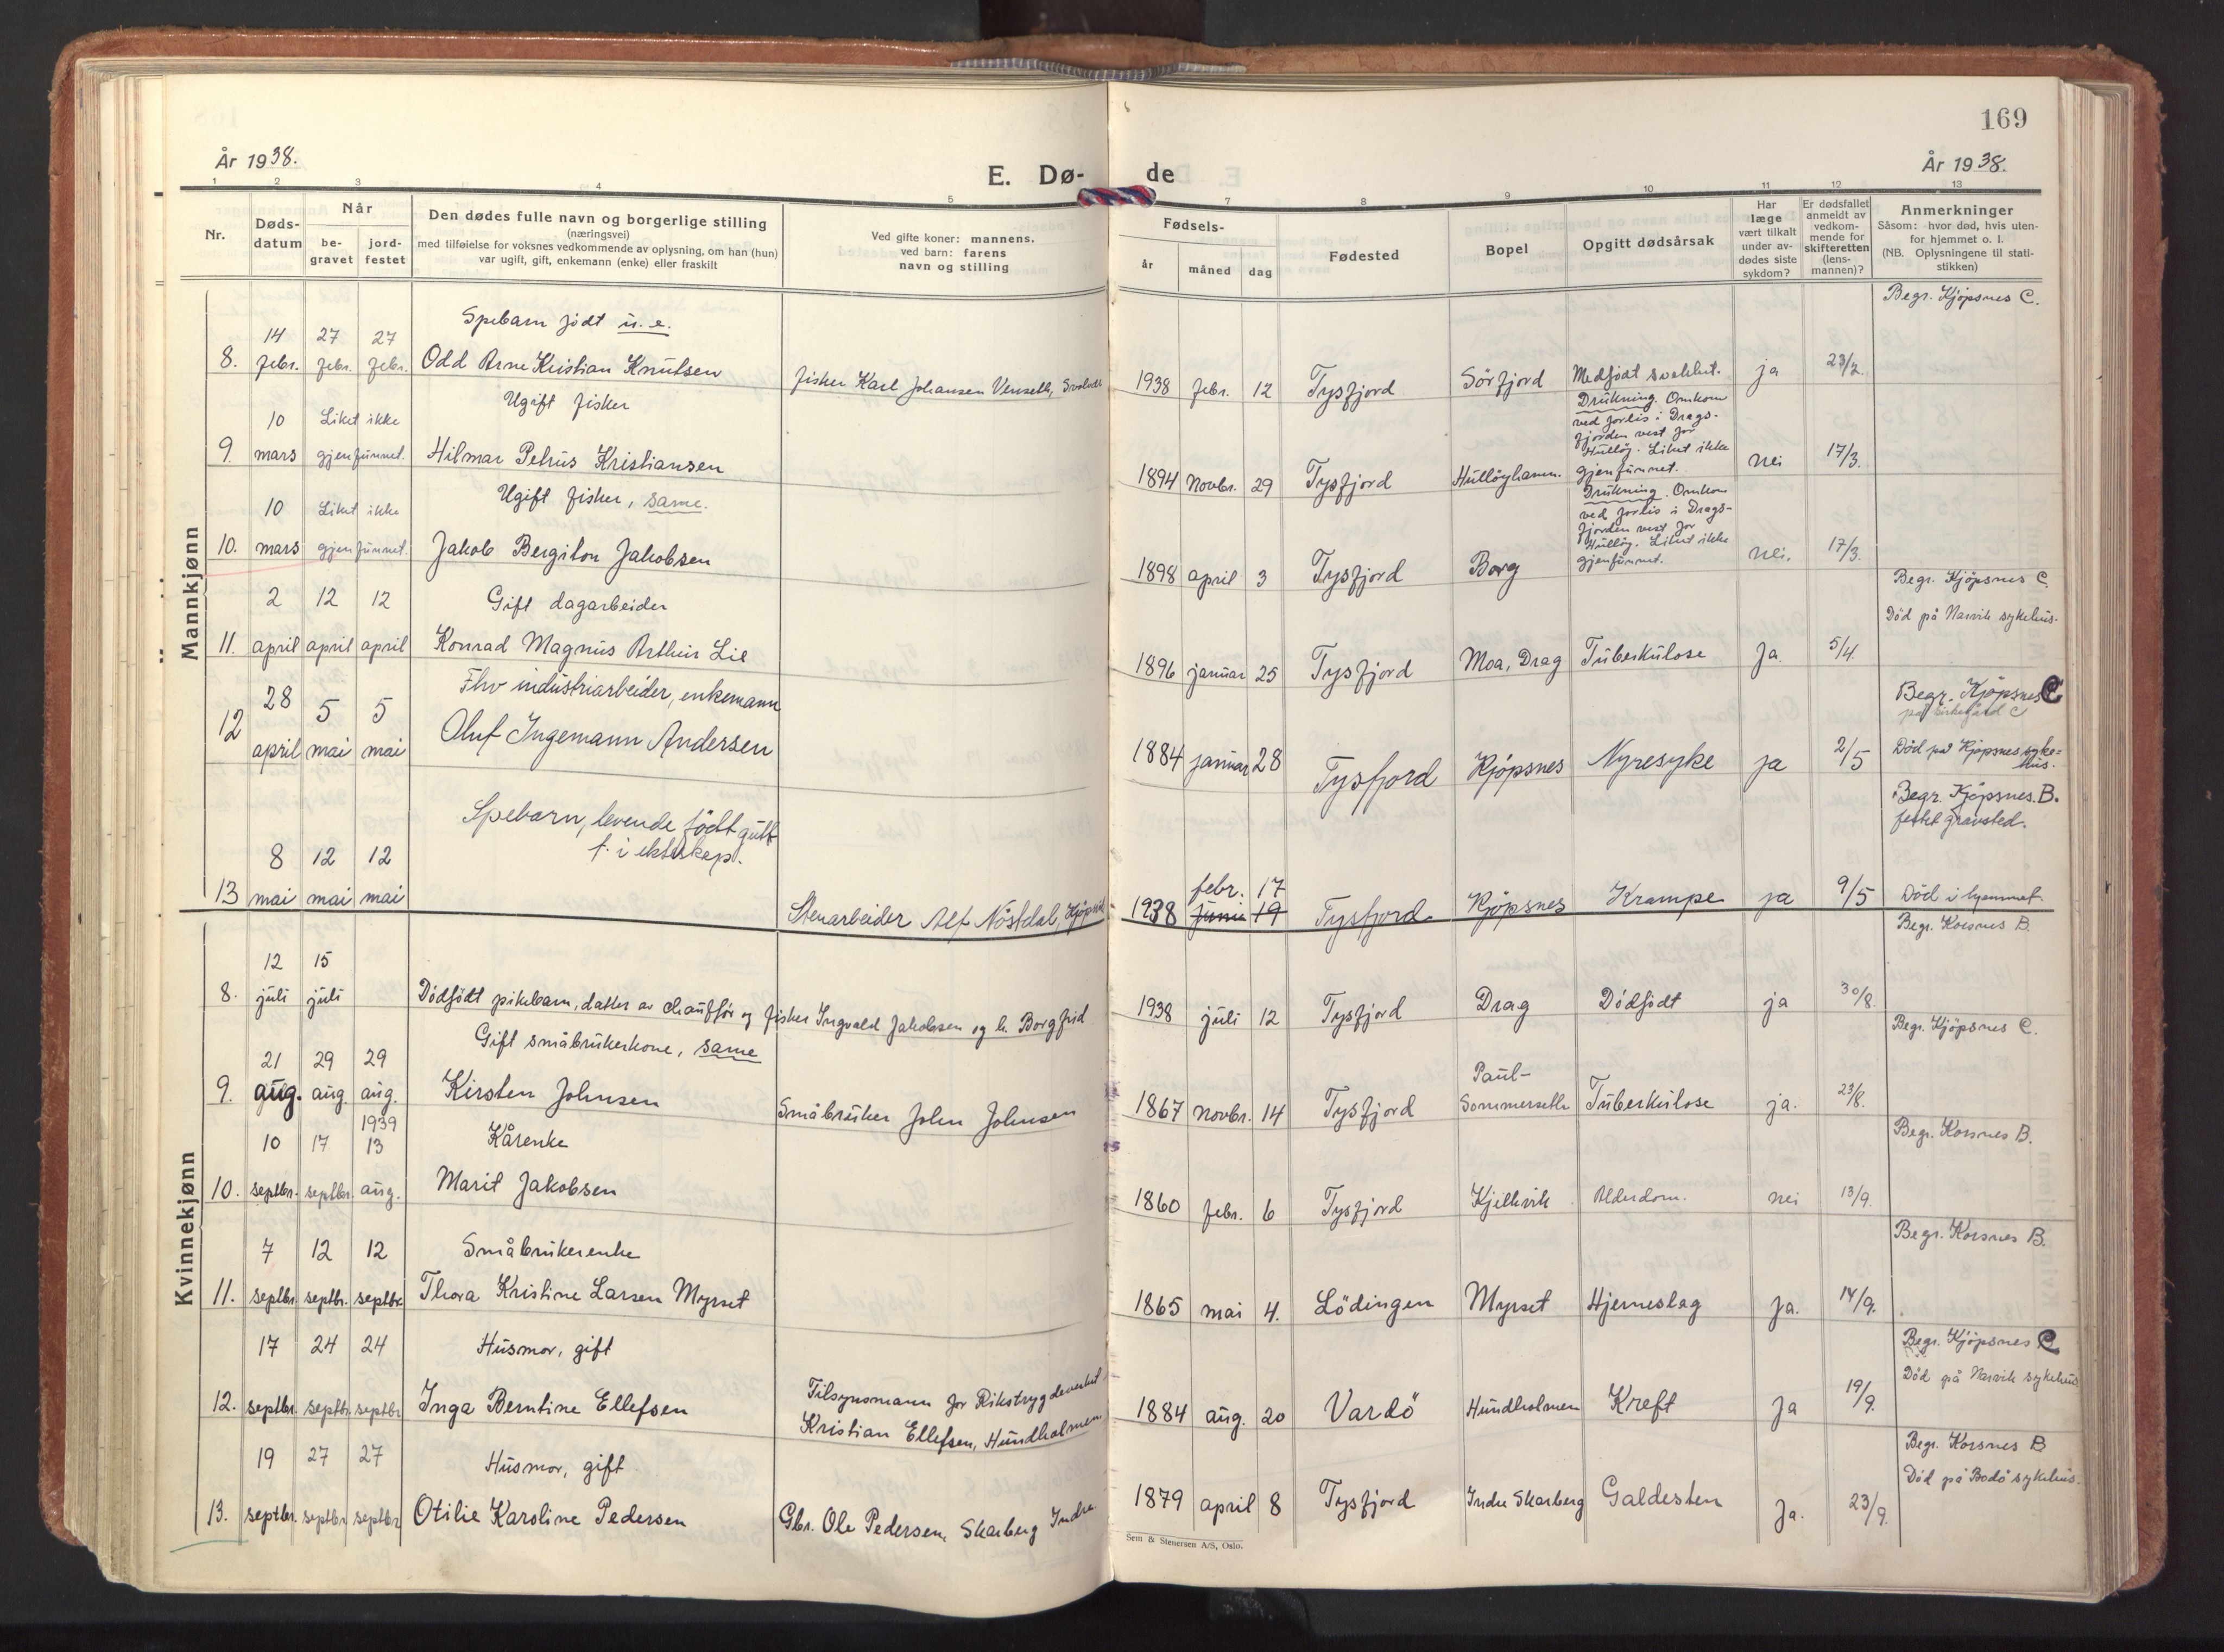 169
År 1938.
E. Dø-
de
År 1938.
1 2 3 4 5 7 8 9 10 11 12 13
Nr.
Døds-
datum
Når
be-
gravet
jord-
festet
Den dødes fulle navn og borgerlige stilling
(næringsvei)
med tilføielse for voksnes vedkommende av oplysning, om han (hun)
var ugift, gift, enkemann (enke) eller fraskilt
Ved gifte koner: mannens.
ved barn: farens
navn og stilling
Fødsels-
år måned dag
Fødested
Bopel
Opgitt dødsårsak
Har
læge
vært tilkalt
under av-
dødes siste
sykdom?
Er dødsfallet
anmeldt av
vedkom-
mende for
skifteretten
(lens-
mannen)?
Anmerkninger
Såsom: hvor død, hvis uten-
for hjemmet o. l.
(NB. Oplysningene til stati-
stikken)
Mannkjønn
Begr. Kjöpsnes C.
Spebarn födt u. e.
14 27 27
8. febr. febr. febr. Odd Arne Kristian Knutsen fisker Karl Johansen 1938 febr. 12 Tysfjord Sörfjord Medfödt svakhet. ja 23/2.
Ugift fisker
10 Liket ikke
Drukning. Omkom
ved forlis i Drags-
fjorden vest for
Hulløy. Liket ikke
gjenfunnet.
9. mars gjenfunnet. Hilmar Petrus Kristiansen 1894 Novbr. 29 Tysfjord Hulløyhamn. nei 17/3.
Ugift fisker, same.
10 Liket ikke
Drukning. Omkom
ved forlis i Drags-
fjorden vest for
Hulløy. Liket ikke
gjenfunnet.
10. mars gjenfunnet. Jakob Bergiton Jakobsen 1898 april 3 Tysfjord Borg nei. 17/3.
Begr. Kjöpsnes C.
Död på Narvik sykehus.
2 12 12 Gift dagarbeider
11. april april april Konrad Magnus Arthur Lie 1896 januar 25 Tysfjord Moa, Drag Tuberkulose Ja. 5/4.
Begr. Kjöpsnes C
på kirkegård C
Fhv industriarbeider, enkemann
28 5 5
12 april mai mai Oluf Ingemann Andersen 1884 januar 28 Tysfjord Kjöpsnes Nyresyke ja 2/5 Död på Kjöpsnes syke=
hus.
Begr. Kjöpsnes. B.
festet gravsted.
Spebarn, levende födt gutt
f. i ekteskap.
8 12 12
febr. 17
13 mai mai mai Stenarbeider Alf Nöstdal, 1938 junie 19 Tysfjord Kjöpsnes Krampe ja 9/5 Död i hjemmet.
Kvinnekjønn
Begr. Korsnes B.
12 15
8. juli juli Dödfödt pikebarn, datter av chauffør og fisker Ingvald Jakobsen og h. Borgfrid 1938 juli 12 Tysfjord Drag Dödfödt ja 30/8.
Begr. Kjöpsnes C.
Gift småbrukerkone, same
21 29 29
9. aug. aug. aug. Kirsten Johnsen Småbruker John Johnsen 1867 novbr. 14 Tysfjord Paul-
Sommerseth Tuberkulose ja. 23/8.
Begr. Korsnes B.
1939
10 17 13 Kårenke
10. septbr. septbr. aug. Marit Jakobsen 1860 febr. 6 Tysfjord Kjelkvik Alderdom. nei 13/9.
Begr. Korsnes B.
7 12 12 Småbrukerenke
11. septbr. septbr. septbr. Thora Kristine Larsen Myrset 1865 mai 4. Lödingen Myrset Hjerneslag Ja. 14/9.
Begr. Kjöpsnes C
Död på Narvik sykehus
17 24 24 Husmor, gift
Tilsynsmann for Rikstrygdeverket
12. septbr. septbr. septbr Inga Berntine Ellefsen Kristian Ellefsen, Hundholmen 1884 aug. 20 Vardö Hundholmen Kreft Ja 19/9.
Begr. Korsnes B
Död på Bodö sykehus.
19 27 27 Husmor, gift
13. septbr. septbr septbr Otilie Karoline Pedersen Gbr. Ole Pedersen, Skarberg Indre 1879 april 8 Tysfjord Indre Skarberg Galdesten Ja. 23/9.
Sem & Stenersen A/S, Oslo.